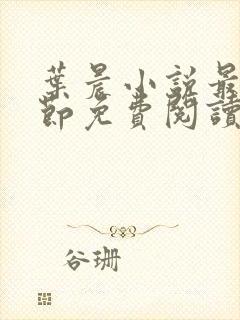 葉晨小說最
節免費閱讀
谷珊